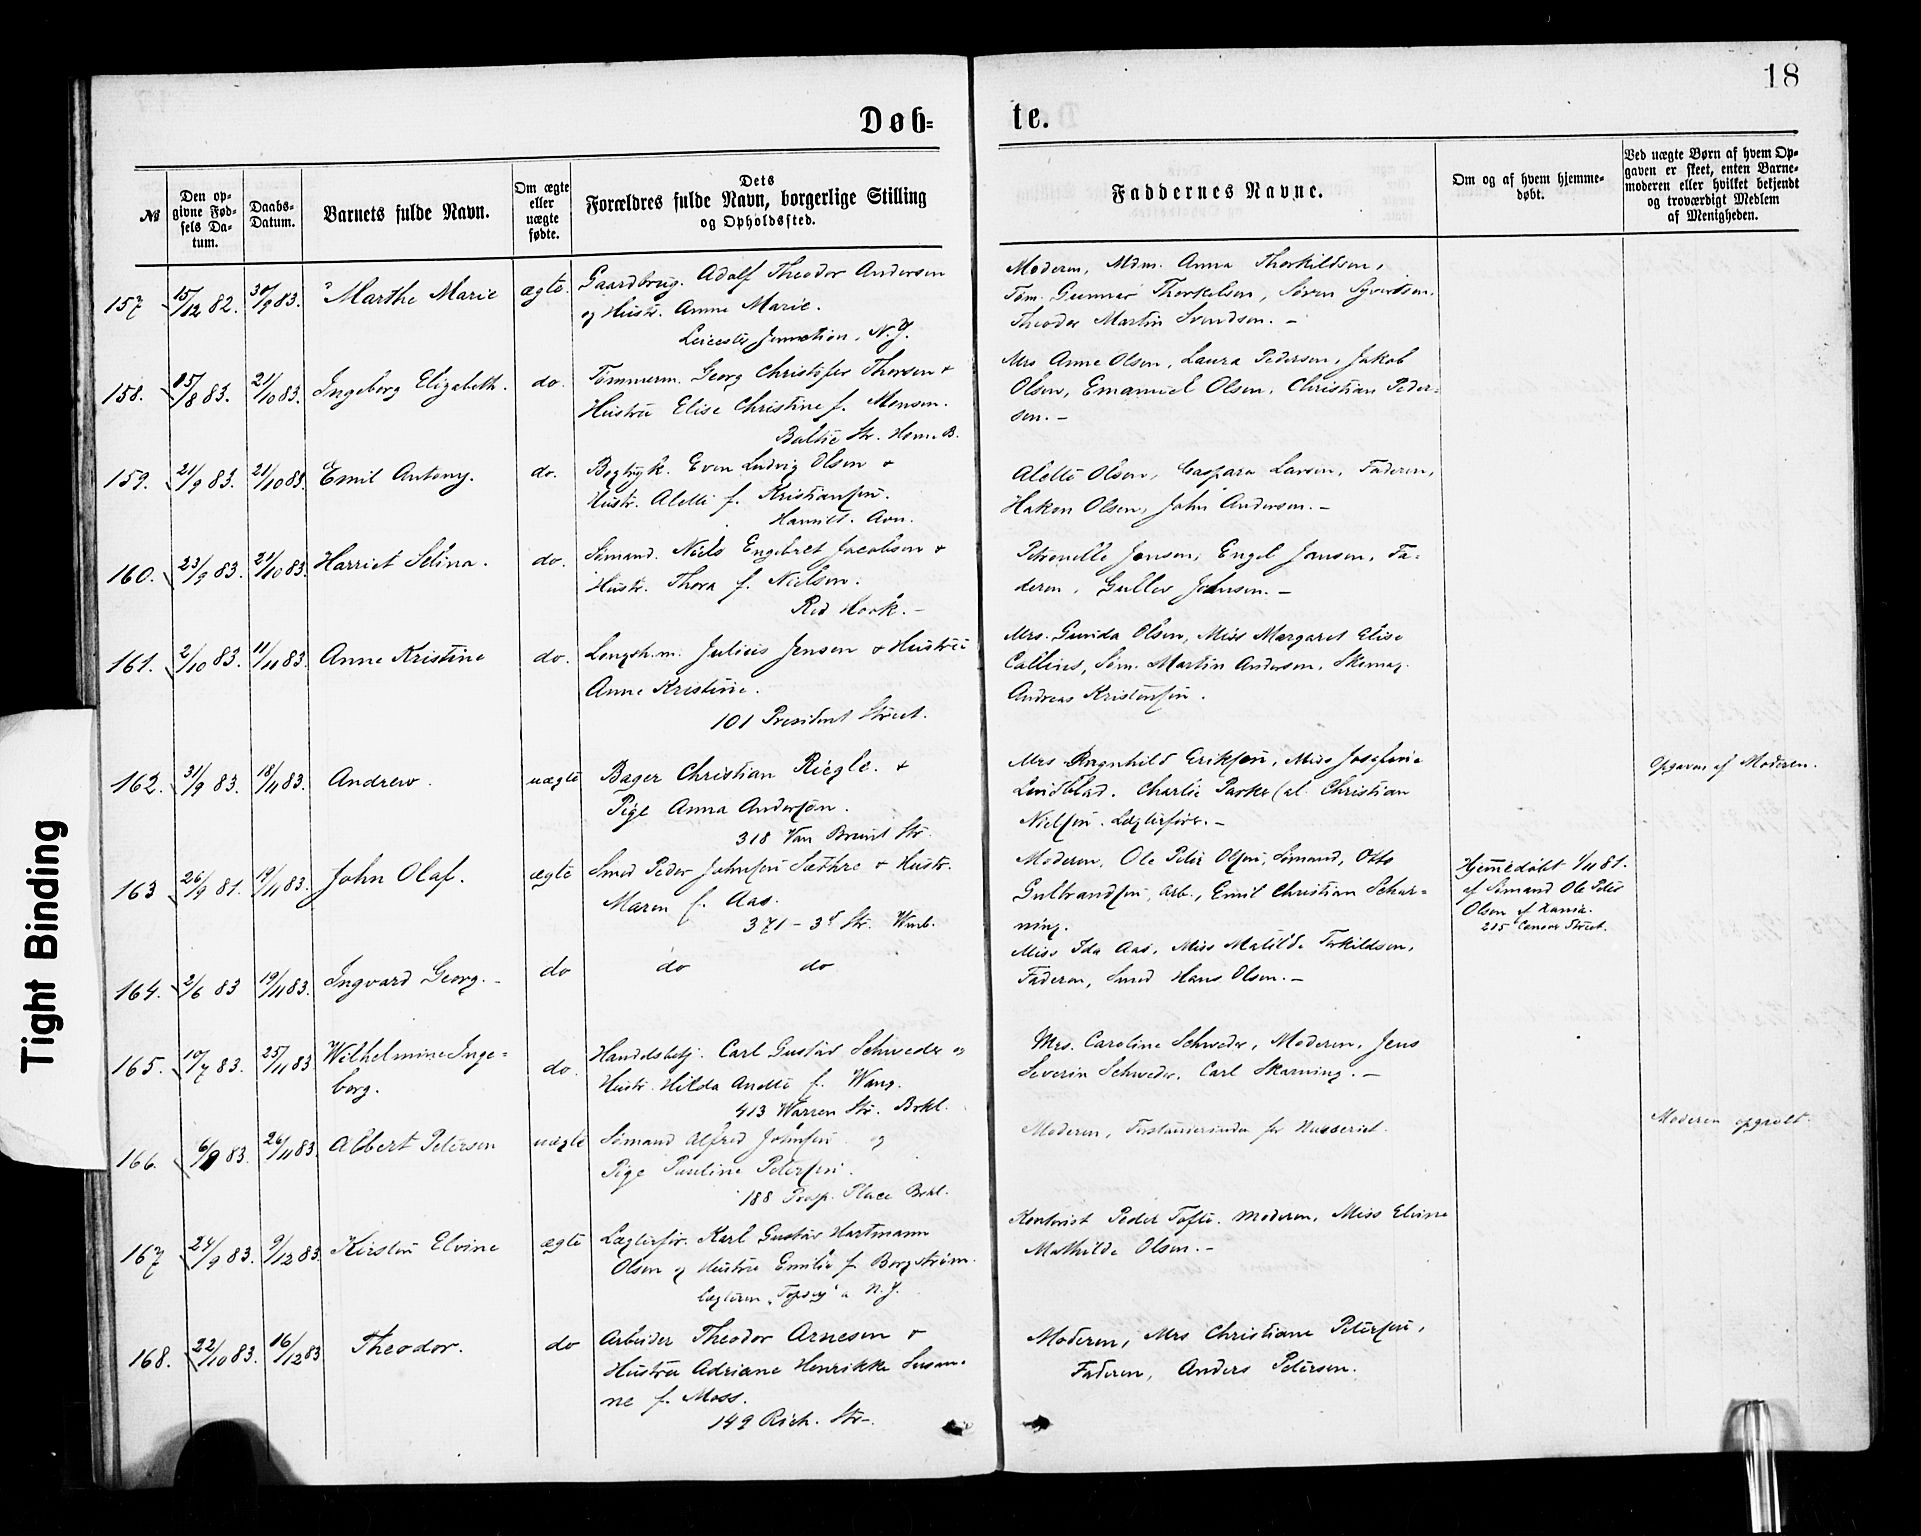 18
Døb=
te.
№
Den op=
givne Fød=
sels Da=
tum.
Daabs=
Datum.
Barnets fulde Navn.
Om ægte
eller
uægte
fødte.
Dets
Forældres fulde Navn, borgerlige Stilling
og Opholdssted.
Faddernes Navne.
Om og af hvem hjemme=
døbt.
Ved uægte Børn af hvem Op=
gaven er skeet, enten Barne=
moderen eller hvilket bekjendt
og troværdigt Medlem
af Menigheden.
157 15/12 82. 30/9 83. Marthe Marie ægte.
Gaardbrug. Adolf Theodor Andersen
og Hustr. Anne Marie.
Leicester Junction, N.Y.
Moderen, Mdm. Anna Thorkildsen,
Tøm. Gunnar Thorkelsen, Søren Syvertsen.
Theodor Martin Svendsen. -
158. 15/8 83. 21/10 83. Ingeborg Elizabeth. do.
Tømmerm. Georg Christofer Thorsen +
Hustru Elise Christine f. Monsen.
Baltic Str. Hom. B.
Mrs Anne Olsen, Laura Pedersen, Jakob
Olsen, Emanuel Olsen, Christian Peder=
sen. -
159. 21/9 83. 21/10 83. Emil Antony. do.
Bogtryk. Even Ludvig Olsen +
Hustr. Alette f. Kristiansen.
Hamilt. Aven.
Alette Olsen, Caspara Larsen, Faderen,
Hakon Olsen, John Andersen. -
160. 23/9 83. 21/10 83. Harriet Selina. do.
Sømand. Niels Engebret Jacobsen +
Hustr. Thora f. Nielsen.
Red Hook. -
Petronelle Jensen, Engel Jansen, Fa=
deren, Gullev Johnsen. -
161. 2/10 83. 11/11 83. Anne Kristine do.
Longsh.m. Julius Jensen + Hustru
Anne Kristine.
101 President Street.
Mrs. Gunda Olsen, Miss Margaret Elise
Collins, Søm. Martin Andersen, Skomag.
Andreas Kristensen.
162. 31/9 83. 18/11 83. Andrew. uægte
Bager Christian Riegle. +
Pige Anna Anderson.
318 Van Brunt Str.
Mrs Ragnhild Eriksen, Miss Josefine
Lindblad. Charlie Parker (al. Christian
Nielsen. Lægterfører. -
Opgaven af Moderen.
163 26/9 81. 19/11 83. John Olaf. ægte
Smed Peder Johnsen Sæthre + Hustr.
Maren f. Aas.
371 - 3d Str.
Moderen, Ole Peter Olsen, Sømand, Otto
Gulbrandsen, Arb., Emil Christian Schar=
ning.
Hjemmedøbt 1/11 81.
af Sømand Ole Peter
Olsen af Xania.
215 Conover Street.
164. 2/6 83 19/11 83. Ingvard Georg. - do
do do
Miss Ida Aas, Miss Matilde Torkildsen,
Faderen, Smed Hans Olsen. -
165. 10/7 83. 25/11 83. Wilhelmine Inge=
borg.
do.
Handelsbetj. Carl Gustav Schweder og
Hustr. Hilda Anette f. Wang.
413 Warren Str. Bokl.
Mrs. Caroline Schweder, Moderen, Jens
Severin Schweder. Carl Skarning. -
166. 6/9 83. 26/11 83. Albert Petersen uægte
Sømand Alfred Johnsen og
Pige Pauline Petersen.
188 Prosp. Place Bokl.
Moderen,
Moderen opgivet.
167 24/9 83. 9/12 83. Kirsten Elvine ægte
Lægterfør. Karl Gustav Hartmann
Olsen og Hustru Emilie f. Borgstrøm.
Lægteren "Topsey" N.J.
Kontorist Peder Tofte. Moderen, Miss Elvine
Mathilde Olsen. -
168. 22/10 83. 16/12 83 Theodor. do
Arbeider Theodor Arnesen +
Hustru Adriane Henrikke Susan=
ne f. Moss.
149 Rich. Str. -
Moderen, Mrs Christiane Petersen,
Faderen, Anders Petersen.
Tight Binding